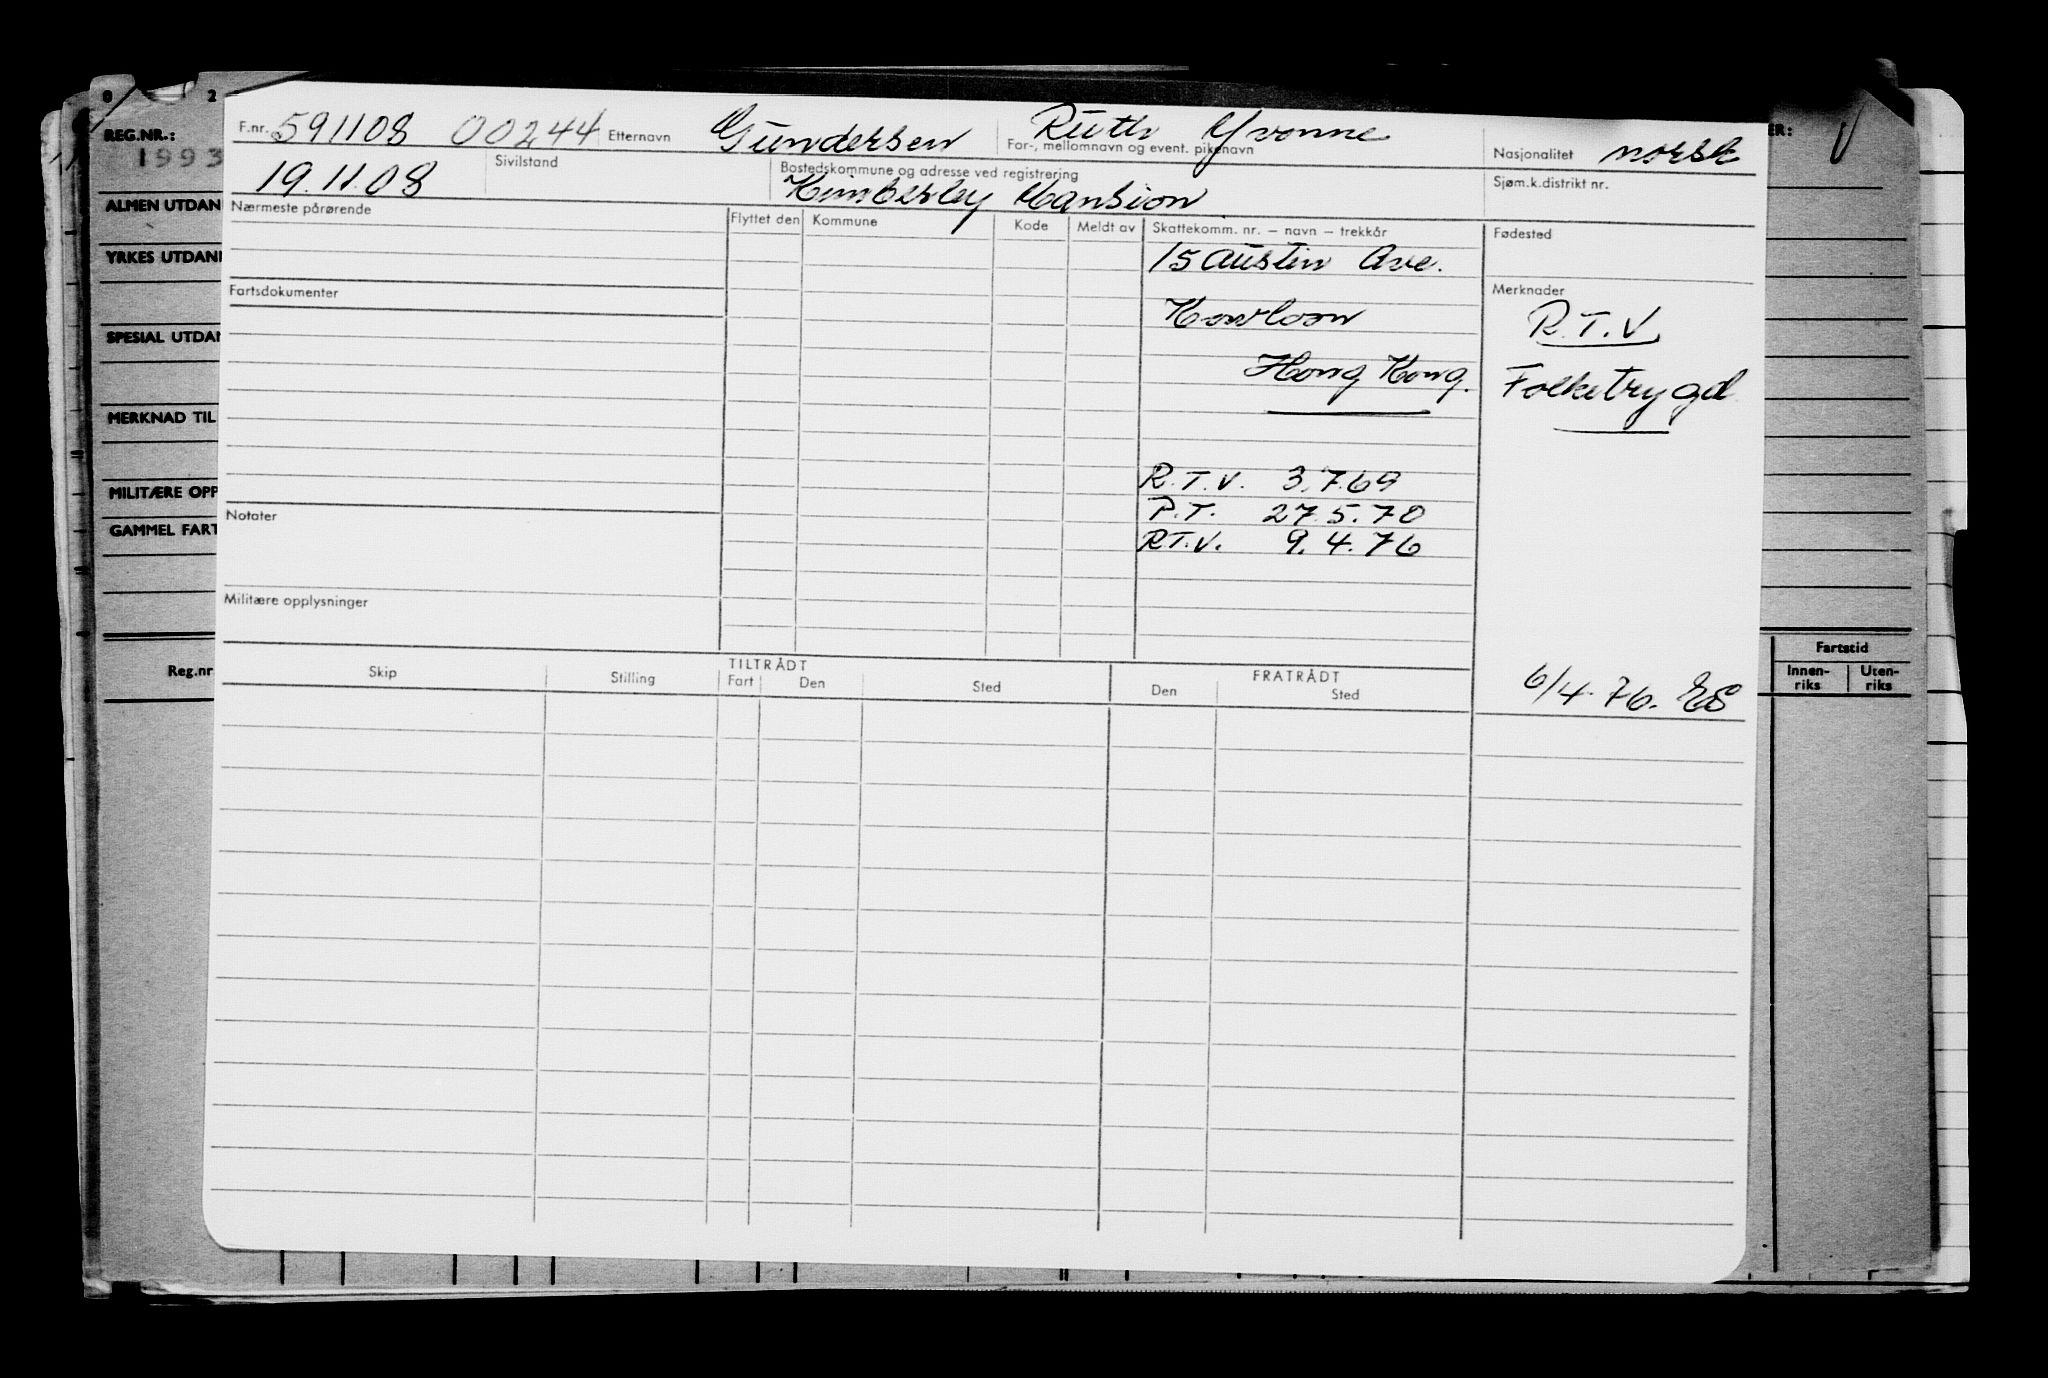 0 2
REG.NR.:
1993
ALMEN UTDAN
YRKES UTDAN
SPESIAL UTDAN
MERKNAD TIL
MILITÆRE OPP
GAMMEL FART
Reg.nr
F.nr. 591108 00244 Etternavn Gundersen Ruth Yvonne
For-, mellomnavn og event. pikenavn
Nasjonalitet norsk
19.11.08 Sivilstand Bostedskommune og adresse ved registrering
Kimberley Mansion
Sjøm.k.distrikt nr.
Nærmeste pårørende Flyttet den Kommune Kode Meldt av Skattekomm. nr. – navn – trekkår Fødested
15 Austin Ave.
Fartsdokumenter Merknader
Kowloon R.T.V.
Hong Kong. Folketrygd
R.T.V. 3.7.69
Notater P.T. 27.5.70
R.T.V. 9.4.76
Militære opplysninger
TILTRÅDT FRATRÅDT
Skip Stilling Fart Den Sted Den Sted
6/4.76. ES
ER: V
Fartstid
Innen-riks Uten-riks